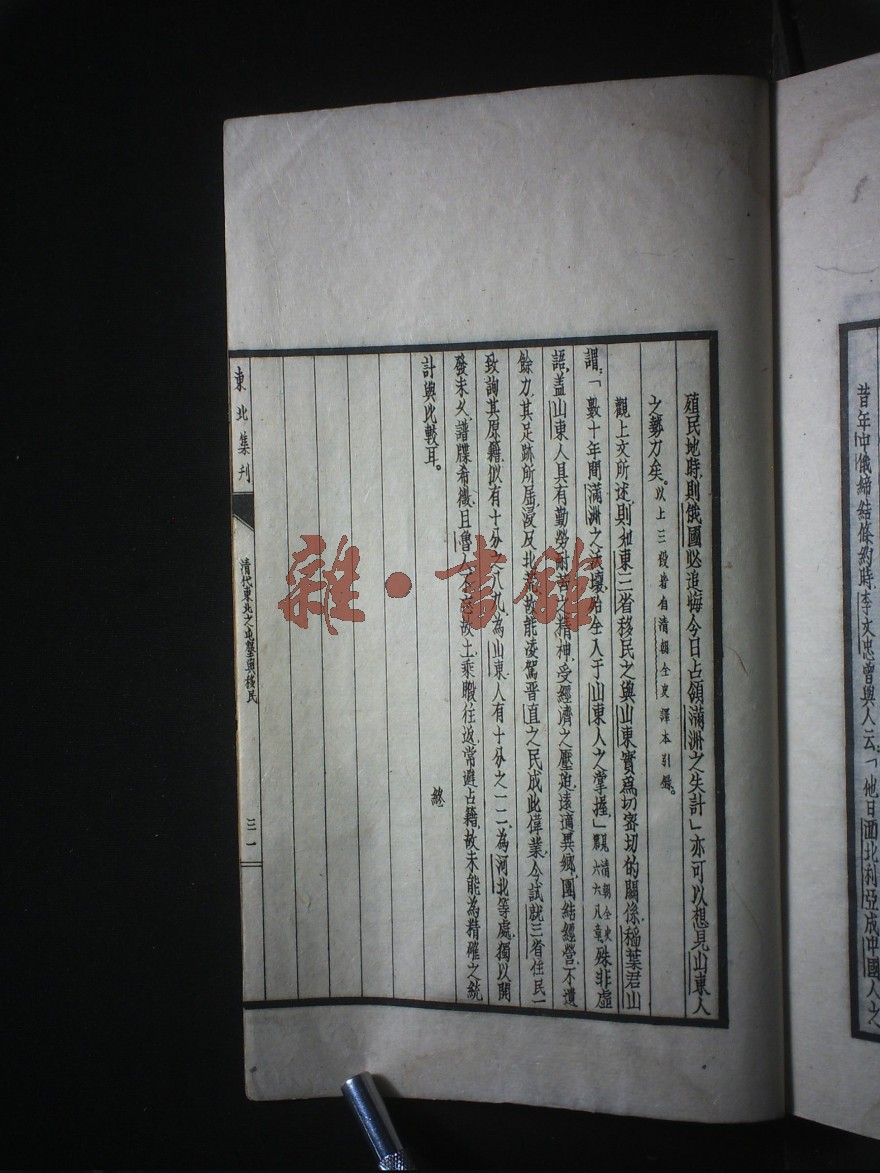 昔年中俄締結條約時李文忠曾與人云「他日西北利亞成中國人之
殖民地時則俄國必追悔今日占領滿洲之失計」亦可以想見山東人
之勢力矣。以上三段皆自清朝全史譯本引錄。
觀上文所述則知東三省移民之與山東實爲切密切的關係稻葉君山
謂「數十年間滿洲之沃壤殆全入于山東人之掌握」見清朝全史第六六八章殊非虛
語蓋山東人具有勤勞耐苦之精神受經濟之壓迫遠適異鄉團結經營不遺
餘力其足跡所屆浸及北荒故能淩駕晉直之民成此偉業今試就三省住民一
致詢其原籍似有十分之八九為山東人有十分之一二為河北等處獨以開
發未久譜牒希徵且魯人不忘故土乘暇往返常避占籍故未能為精確之統
計與比較耳。
終
東北集刊
清代東北之屯墾與移民
三一
雜·書館